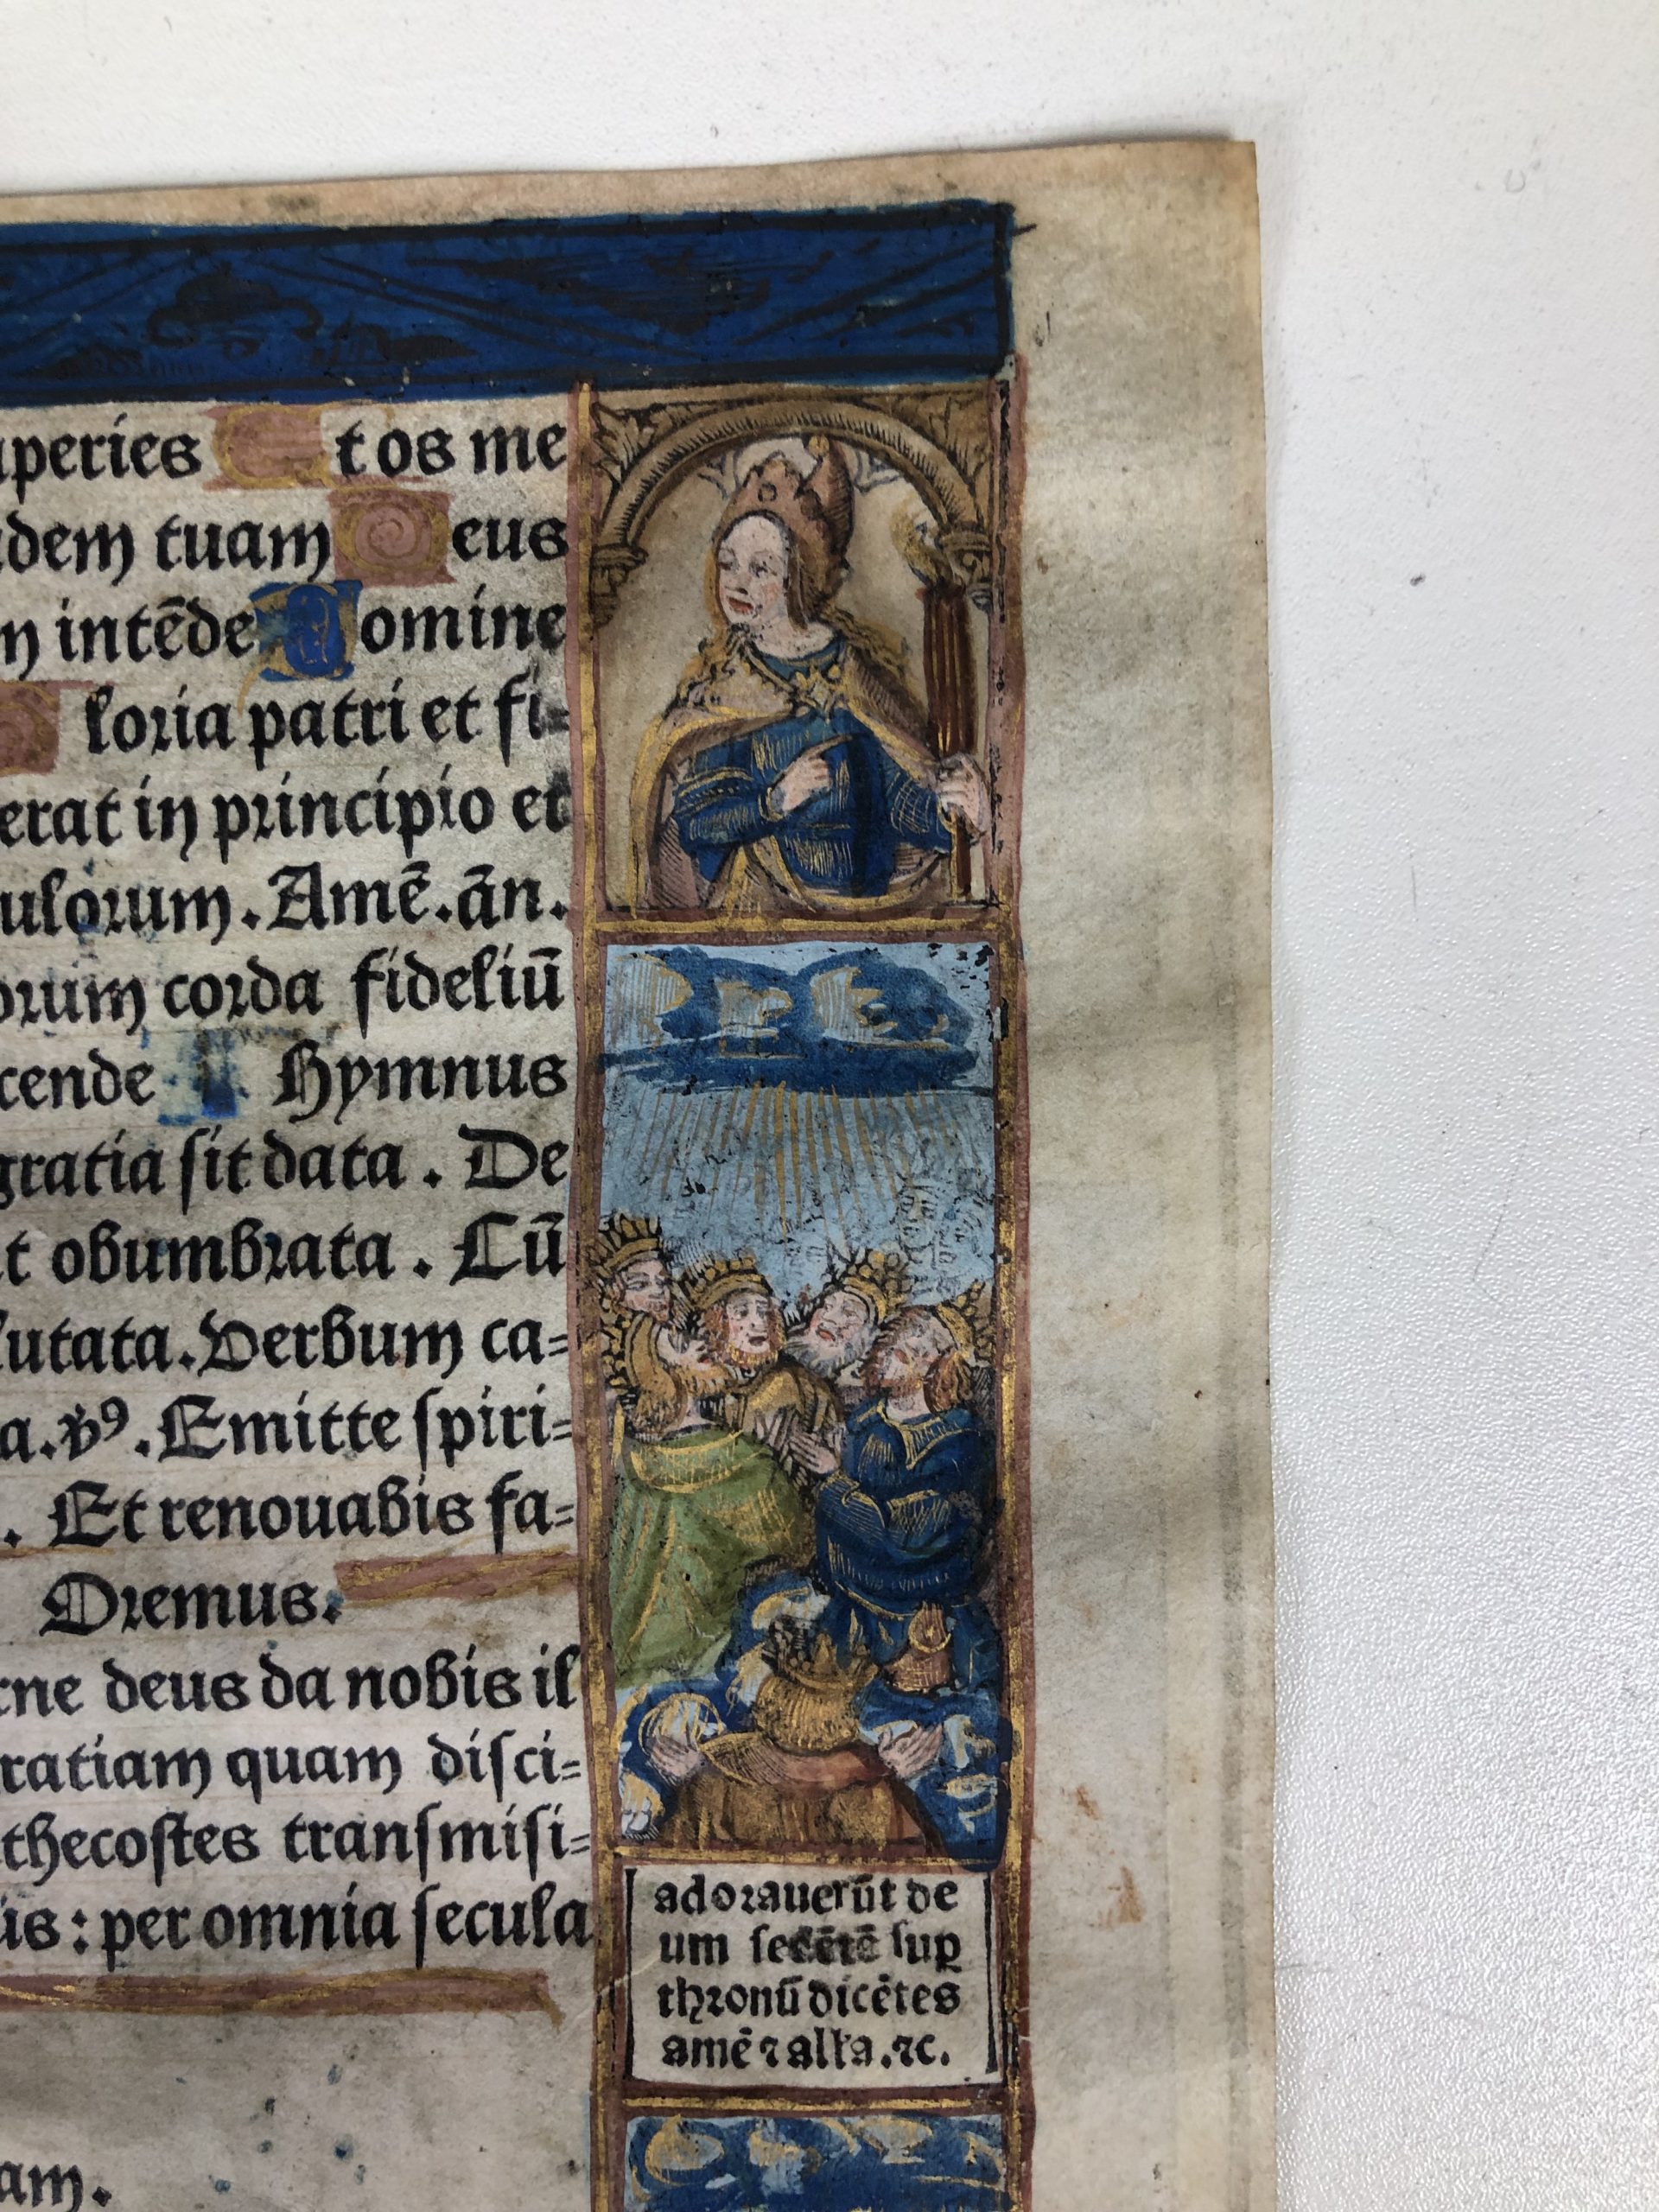 aperies t os me
dem tuam eus
n intēde Domine
loria patri et fi=
erat in principio et
ulorum. Amē. ān.
orum corda fideliū
cende Hymnus
gratia sit data. De
t obumbrata. Cū
lutata. Verbum ca=
a. v9. Emitte spiri=
. Et renouabis fa=
Oremus.
rne deus da nobis il
ratiam quam disci=
thecostes transmisi=
is: per omnia secula
am.
adorauerūt de
um sedētē sup
thronū dicētes
amē ⁊ alla. ⁊c.